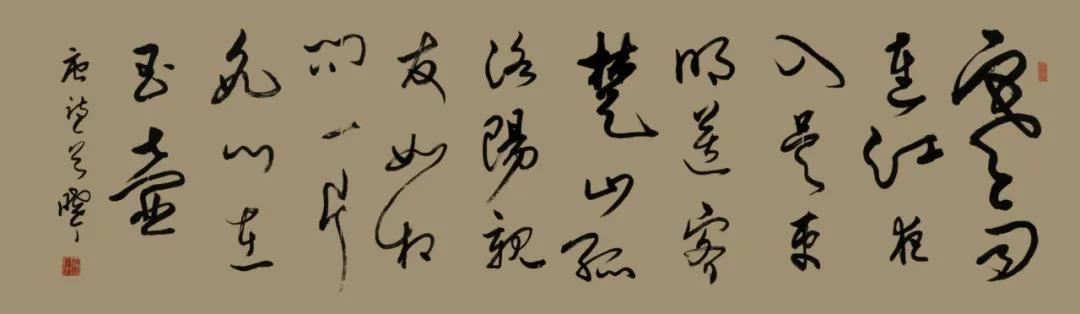 寒雨
連江夜
入吴平
明送客
楚山孤
洛陽親
友如相
問一片
冰心在
玉壺
唐詩